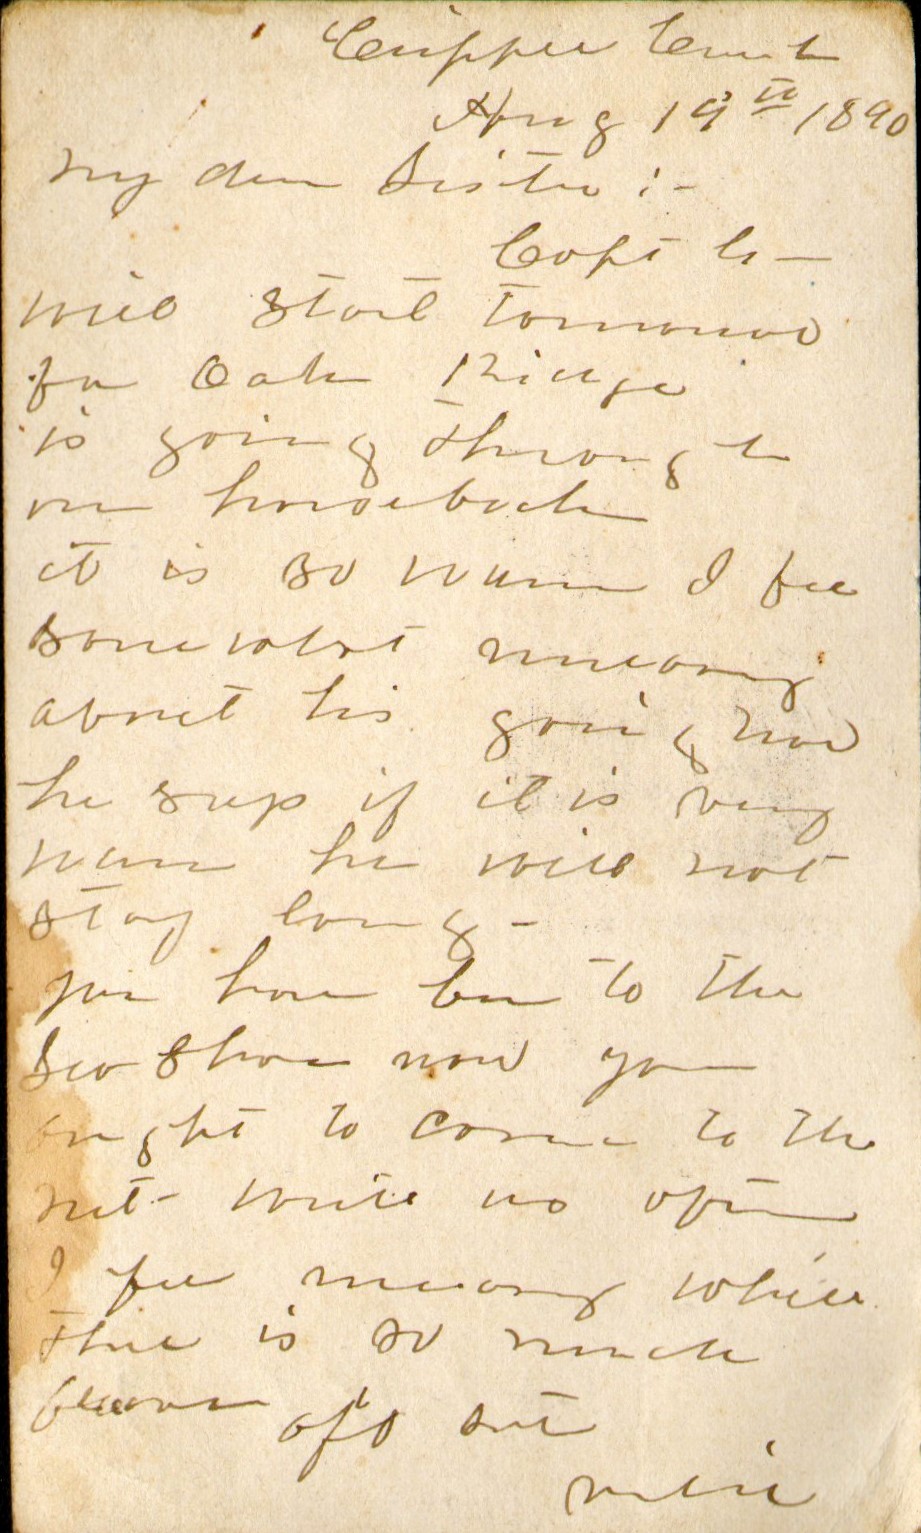 Cripple Creek
Aug 19th 1890
My dear Sister :-
Capt C -
will start tomorrow
for Oak Ridge
is going through
on horseback
it is so warm I feel
somewhat uneasy
about his going now
he says if it is very
warm he will not
stay long -
you have been to the
Sea Shore now you
ought to come to the
write us often
I feel uneasy while
there is so much
aft Sist